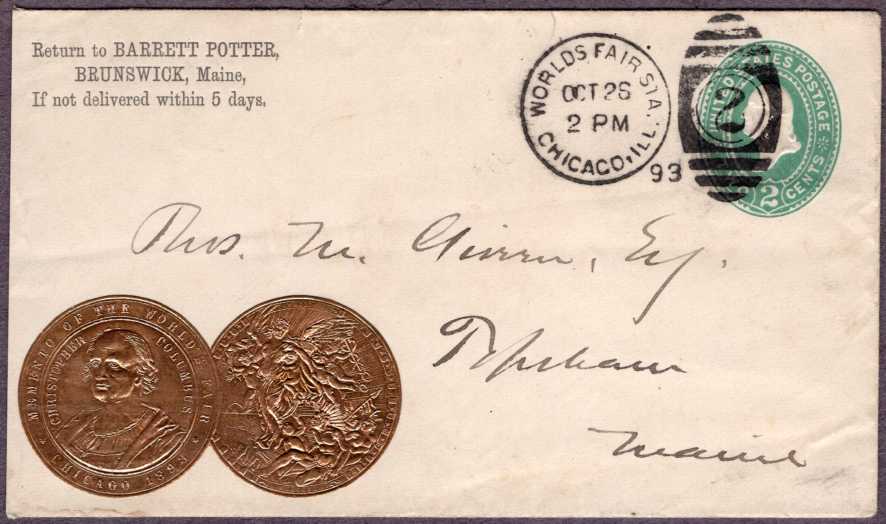 Return to BARRETT POTTER,
BRUNSWICK, Maine,
If not delivered within 5 days.
WORLDS FAIR STA.
OCT 26
2 PM
CHICAGO, ILL.
93
2
UNITED STATES POSTAGE
2 CENTS
Thos. M. Esq.
Topsham
Maine
MEMENTO OF THE WORLD'S FAIR
CHRISTOPHER COLUMBUS
CHICAGO 1893